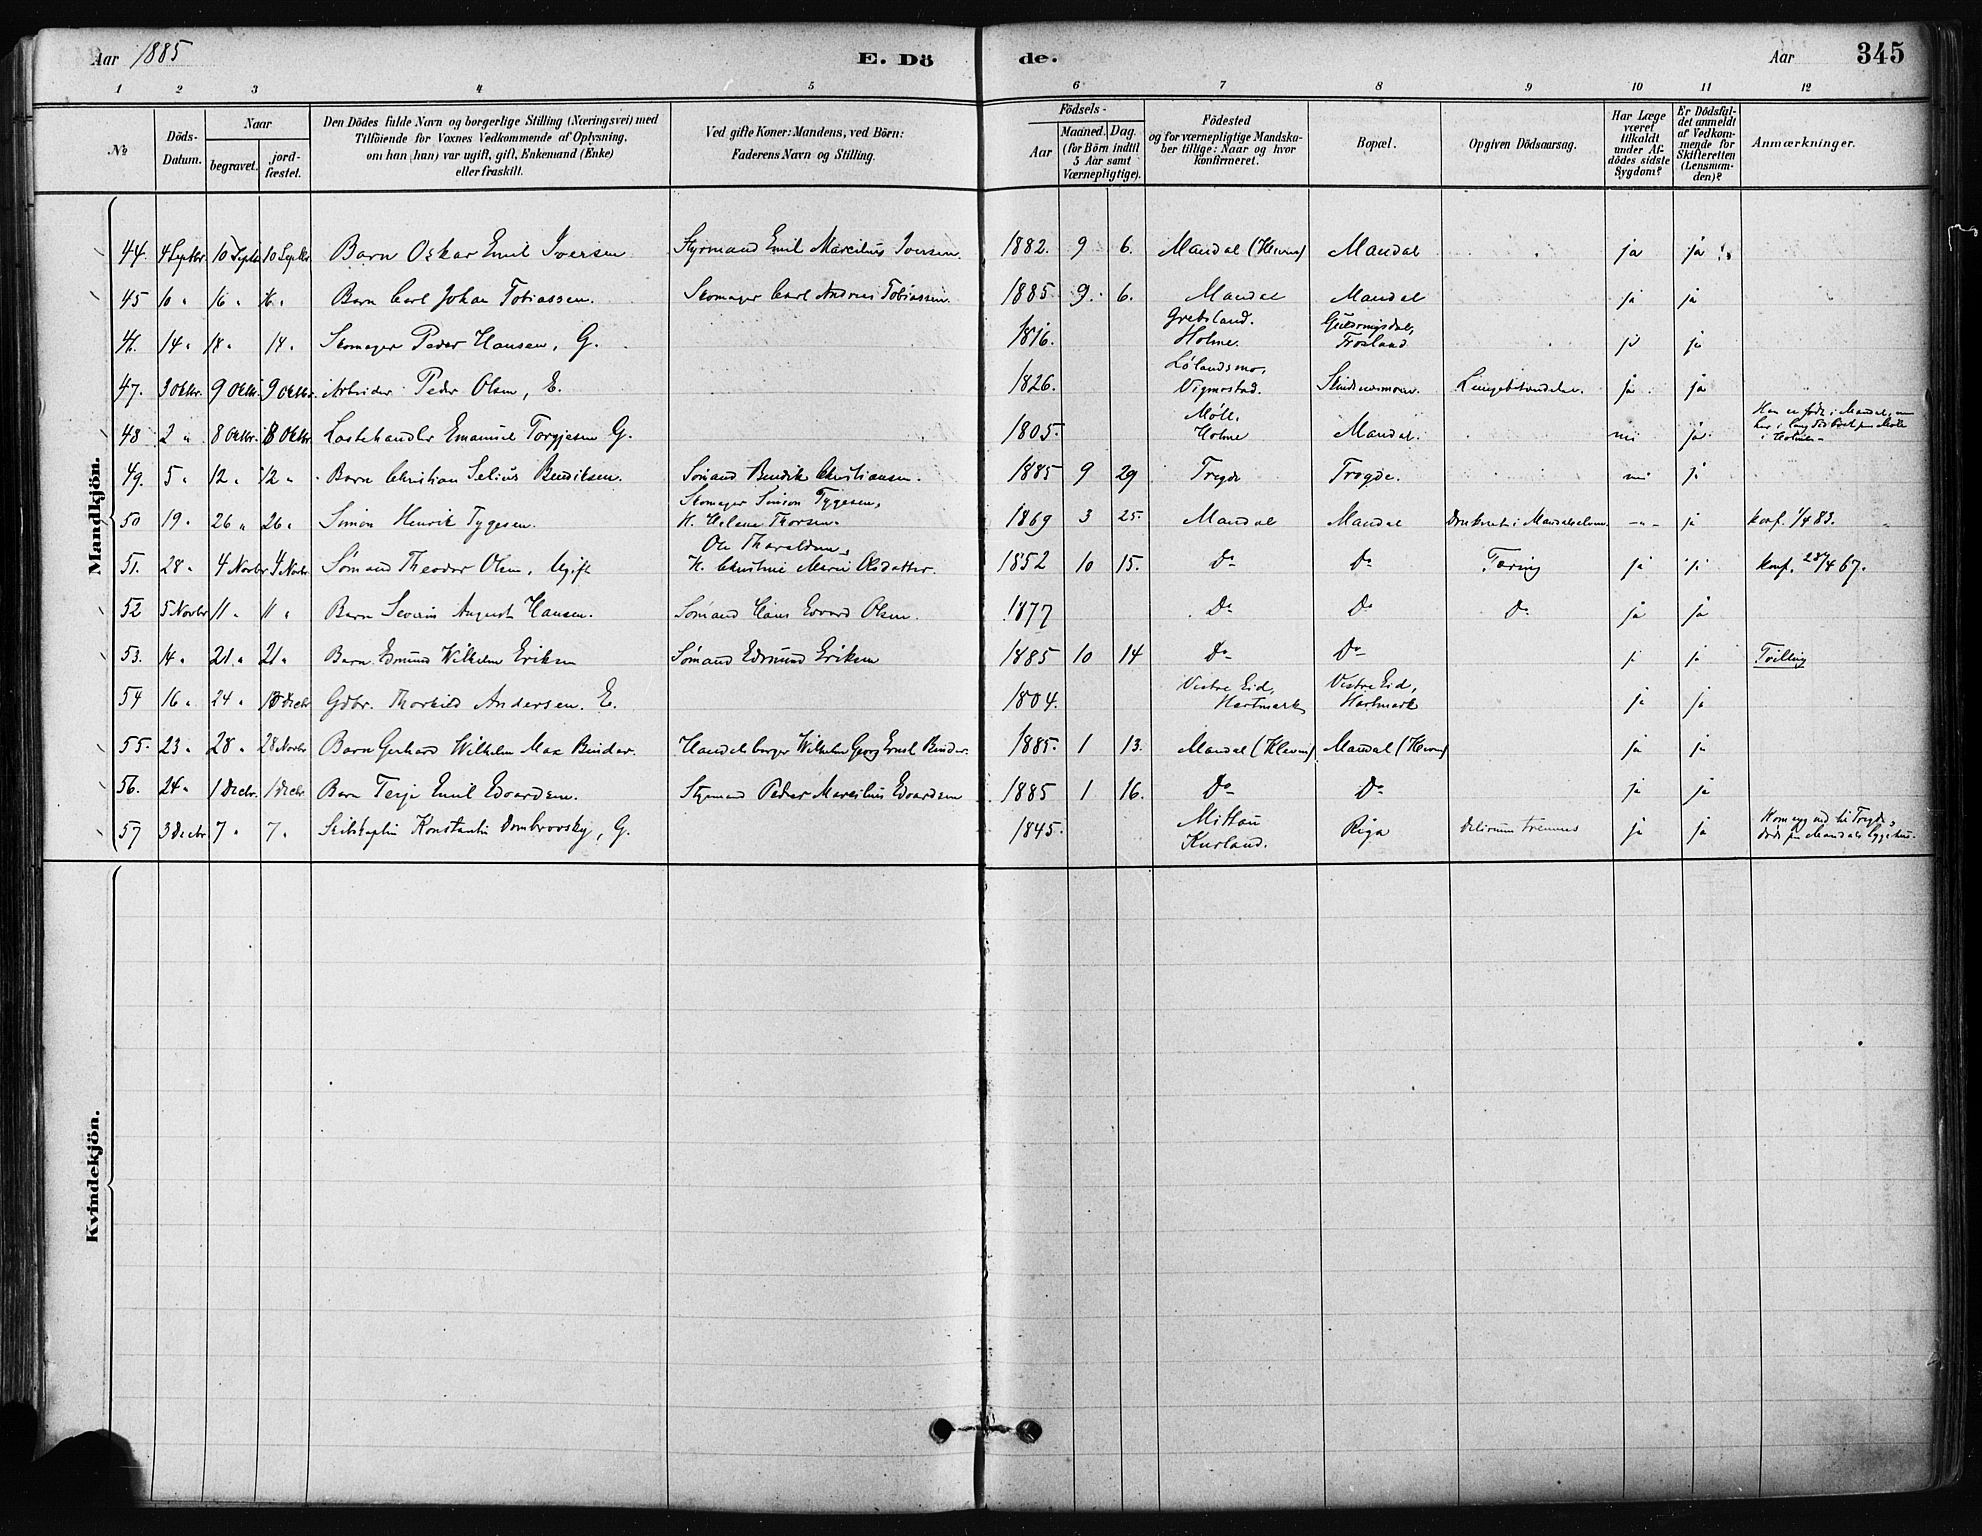 Aar 1885
E. Dö
de.
Aar
345
1 2 3 4 5 6 7 8 9 10 11 12
No
Döds-Datum.
Naar
begravet.
jord-fæstet.
Den Dödes fulde Navn og borgerlige Stilling (Næringsvei) med
Tilföiende for Voxnes Vedkommende af Oplysning,
om han (hun) var ugift, gift, Enkemand (Enke)
eller fraskilt.
Ved gifte Koner: Mandens, ved Börn:
Faderens Navn og Stilling.
Födsels-
Aar
Maaned. Dag.
(for Börn indtil
5 Aar samt
Værnepligtige).
Födested
og for værnepligtige Mandska-
ber tillige: Naar og hvor
konfirmeret.
Bopæl.
Opgiven Dödsaarsag.
Har Læge
været
tilkaldt
under Af-
dödes sidste
Sygdom?
Er Dödsfal-
det anmeldt
af Vedkom-
mende for
Skifteretten
(Lensman-
den)?
Anmærkninger.
Mandkjön.
44. 4 Septbr. 10 Septbr 10 Septbr Barn Oskar Emil Iversen Styrmand Emil Marcilius Iversen. 1882. 9 6. Mandal (Kleven) Mandal ja ja
45 10 " 16 " 16 " Barn Carl Johan Tobiassen. Skomager Carl Andreas Tobiassen. 1885 9. 6. Mandal Mandal ja ja
46. 14 " 18 " 18 " Skomager Peder Hansen, G. 1816. Grebsland. Holme. Frøsland. ja ja
47. 3 Oktbr. 9 Oktbr. 9 Oktbr. Arbeider Peder Olsen, E. 1826. Lølandsmo, Vigmostad. Skindsnesmoen. Lungebetændelse. ja ja
48 2 " 8 Oktbr. 8 Oktbr Lastehandler Emanuel Torgjesen G. 1805. Møll. Holme Mandal. nei ja Han er født i Mandal, men
i Holme.
49. 5 " 12 " 12 " Barn Christian Selius Bendiksen. Sømand Bendik Christiansen. 1885 9 29 Tregde Tregde. nei ja
50 19 " 26 " 26 " Simon Henrik Tygesen. Skomager Simon Tygesen, H. Helene Thorsen. 1869 3 25. Mandal Mandal Druknet i Mandalselven. -"- ja konf. 1/4 83.
51. 28 " 4 Novbr 4 Novbr Sømand Theodor Olsen, Ugift Ole Tharaldsen, H. Christine Marie Olsdatter. 1852 10 15. Do Do Tæring ja ja konf. 28/4 67.
52 5 Novbr 11 " 11 " Barn Severin August Hansen. Sømand Hans Edvard Olsen. 1877 Do Do Do ja ja
53. 14 " 21 " 21 " Barn Edmund Wilhelm Eriksen Sømand Edmund Eriksen 1885 10 14 Do Do ja ja Tvilling
54 16 " 24 " Decbr Gdbr. Thorkild Andersen. E. 1804. Vestre Eid, Hartmark Vestre Eid, Hartmark ja ja
55. 23 " 28 " 28 Novbr Barn Gerhard Wilhelm Max Binder. Handelsborger Wilhelm Georg Ernst Binder. 1885. 1 13. Mandal (Kleven) Mandal (Kleven) ja ja
56. 24 " 1 Decbr. 1 Decbr. Barn Terje Emil Edvardsen. Styrmand Peder Marcilius Edvardsen 1885 1 16. Do Do ja ja
57 3 Decbr 7 " 7 " Skibskaptein Konstantin Dombrovsky, G. 1845. Mittau Kurland. Riga Delirium tremens ja ja Kom syg ind til Tregde,
døde paa Mandals Sygehus.
Kvindekjön.